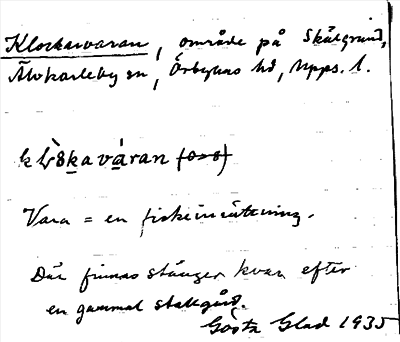 Klockarvaran, område på Skälgrund,
Älvkarleby sn, Örbyhus hd, Upps. l.
Vara = en fiskeinrättning.
Där finnas stänger kvar efter
en gammal stakgård.
Gösta Glad 1935